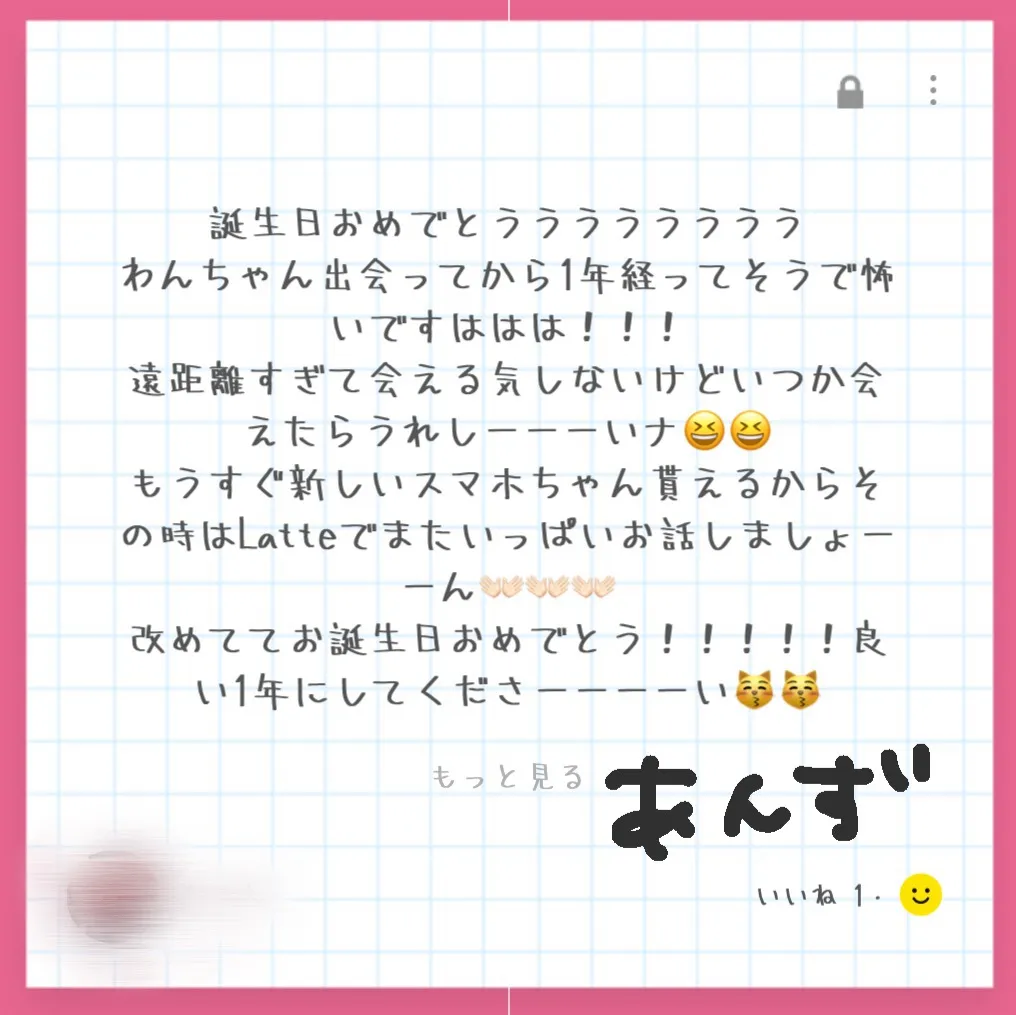 誕生日おめでとうううううううう
わんちゃん出会ってから1年経ってそうで怖
いですははは！！！
遠距離すぎて会える気しないけどいつか会
えたらうれしーーーいナ😆😆
もうすぐ新しいスマホちゃん貰えるからそ
の時はLatteでまたいっぱいお話しましょー
ーん👐🏻👐🏻👐🏻
改めててお誕生日おめでとう！！！！！良
い1年にしてくださーーーーい😽😽
もっと見る
あんず
いいね 1・